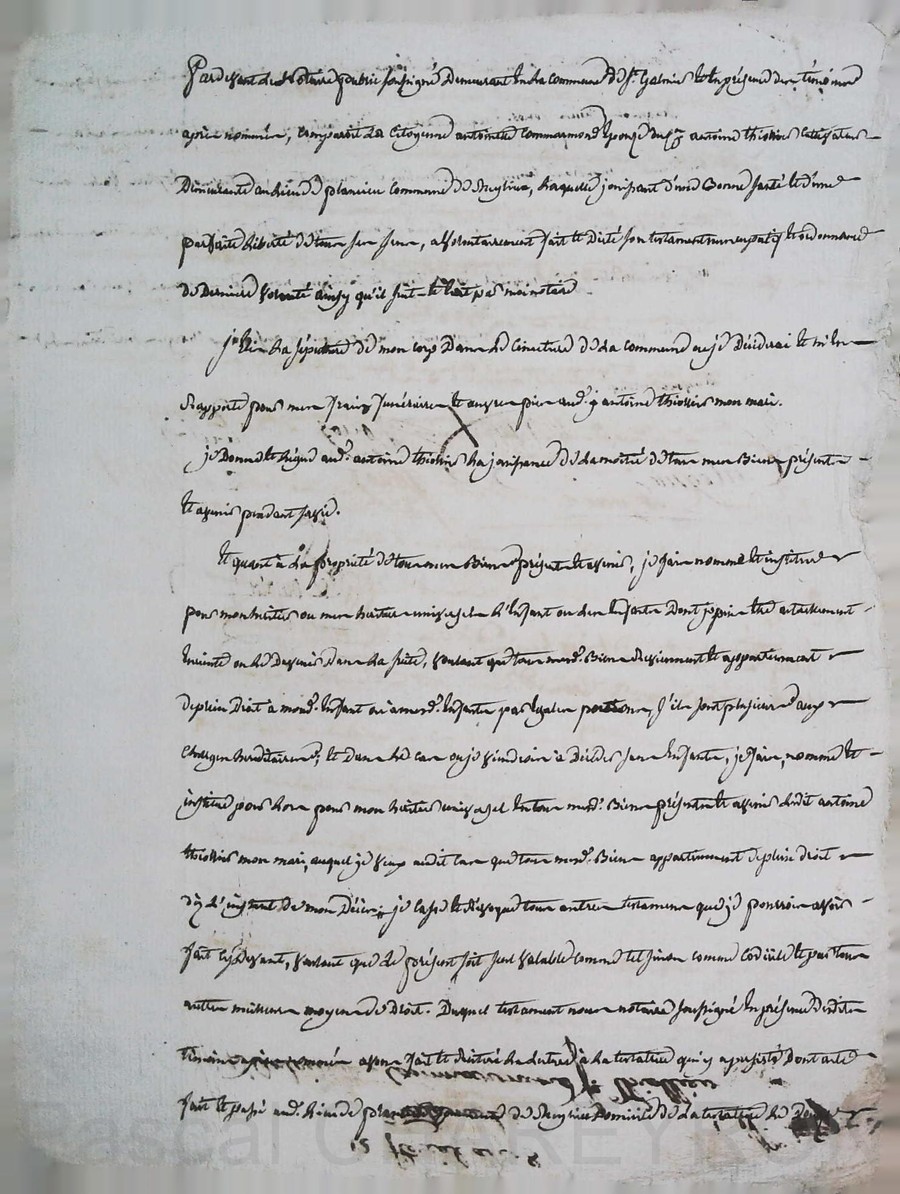 Pardevant le Notaire public soussigné Demeurant en la commune de St. Galmier et en présence des témoins
après nommés, comparoit la Citoyenne antoinette Commarmond Epouse du Cn antoine thiollier Cultivateur
Demeurante au lieu de plancieu commune de Meylieu, Laquelle jouissant d'une Bonne santé et d'une
parfaite liberté de tous ses sens, a volontairement fait et Dicté son testament nuncupatif et ordonnance
de Derniere volonté ainsy qu'il suit et écrit par moi notaire
j'elis la sépulture de mon corps Dans le Cimetiere de la commune ou je Décéderai et m'en
Rapporte pour mes fraix funéraires et œuvres pies aud. antoine thiollier mon mari.
je Donne et Légue aud. antoine thiollier la jouissance de la moitié de tous mes Biens présents
et avenir pendant sa vie.
Et quant à la propriété de tous mes Biens présents et avenir, je fais nomme et institue
pour mon héritier ou mes héritiers universels L'Enfant ou les Enfants Dont je puis etre actuellement
Enceinte ou le Devenir dans la suite, voulant que tous mesd. Biens Reviennent et appartiennent
de plein Droit à mond. Enfant ou à mesd. Enfants par Egales portions, s'ils sont plusieurs aux
Charges héréditaires; et dans le cas ou je viendrois à Décéder sans Enfants, je fais, nomme et
institue pour lors pour mon héritier universel En tous mesd. Biens présents et avenir ledit antoine
thiollier mon mari, auquel je veux audit cas que tous mesd. Biens appartiennent de plein droit
dez l'instant De mon Décès; je casse et Révoque tous autres testaments que je pourrois avoir
fait cy Devant, voulant que le présent soit seul valable comme tel sinon comme Codicile et par tous
autres meilleurs moyens de Droit. Duquel testament nous notaire soussigné En présence desdits
témoins avons fait et réitéré la lecture à la testatrice qui y a persisté Dont acte
Commarmond fe thiollier
fait et passé aud. lieu de de Meylieu Domicile de la testatrice le